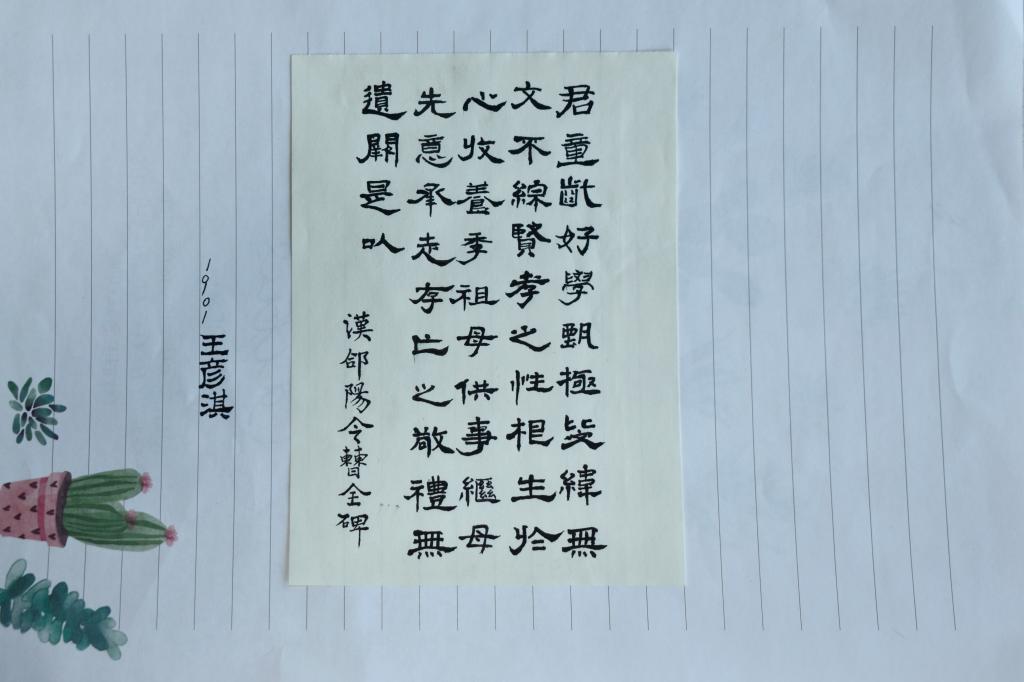 君童齔好學甄極毖緯無
文不綜賢孝之性根生於
心收養季祖母供事繼母
先意承志存亡之敬禮無
遺闕是以
漢郃陽令曹全碑
1901 王彦淇